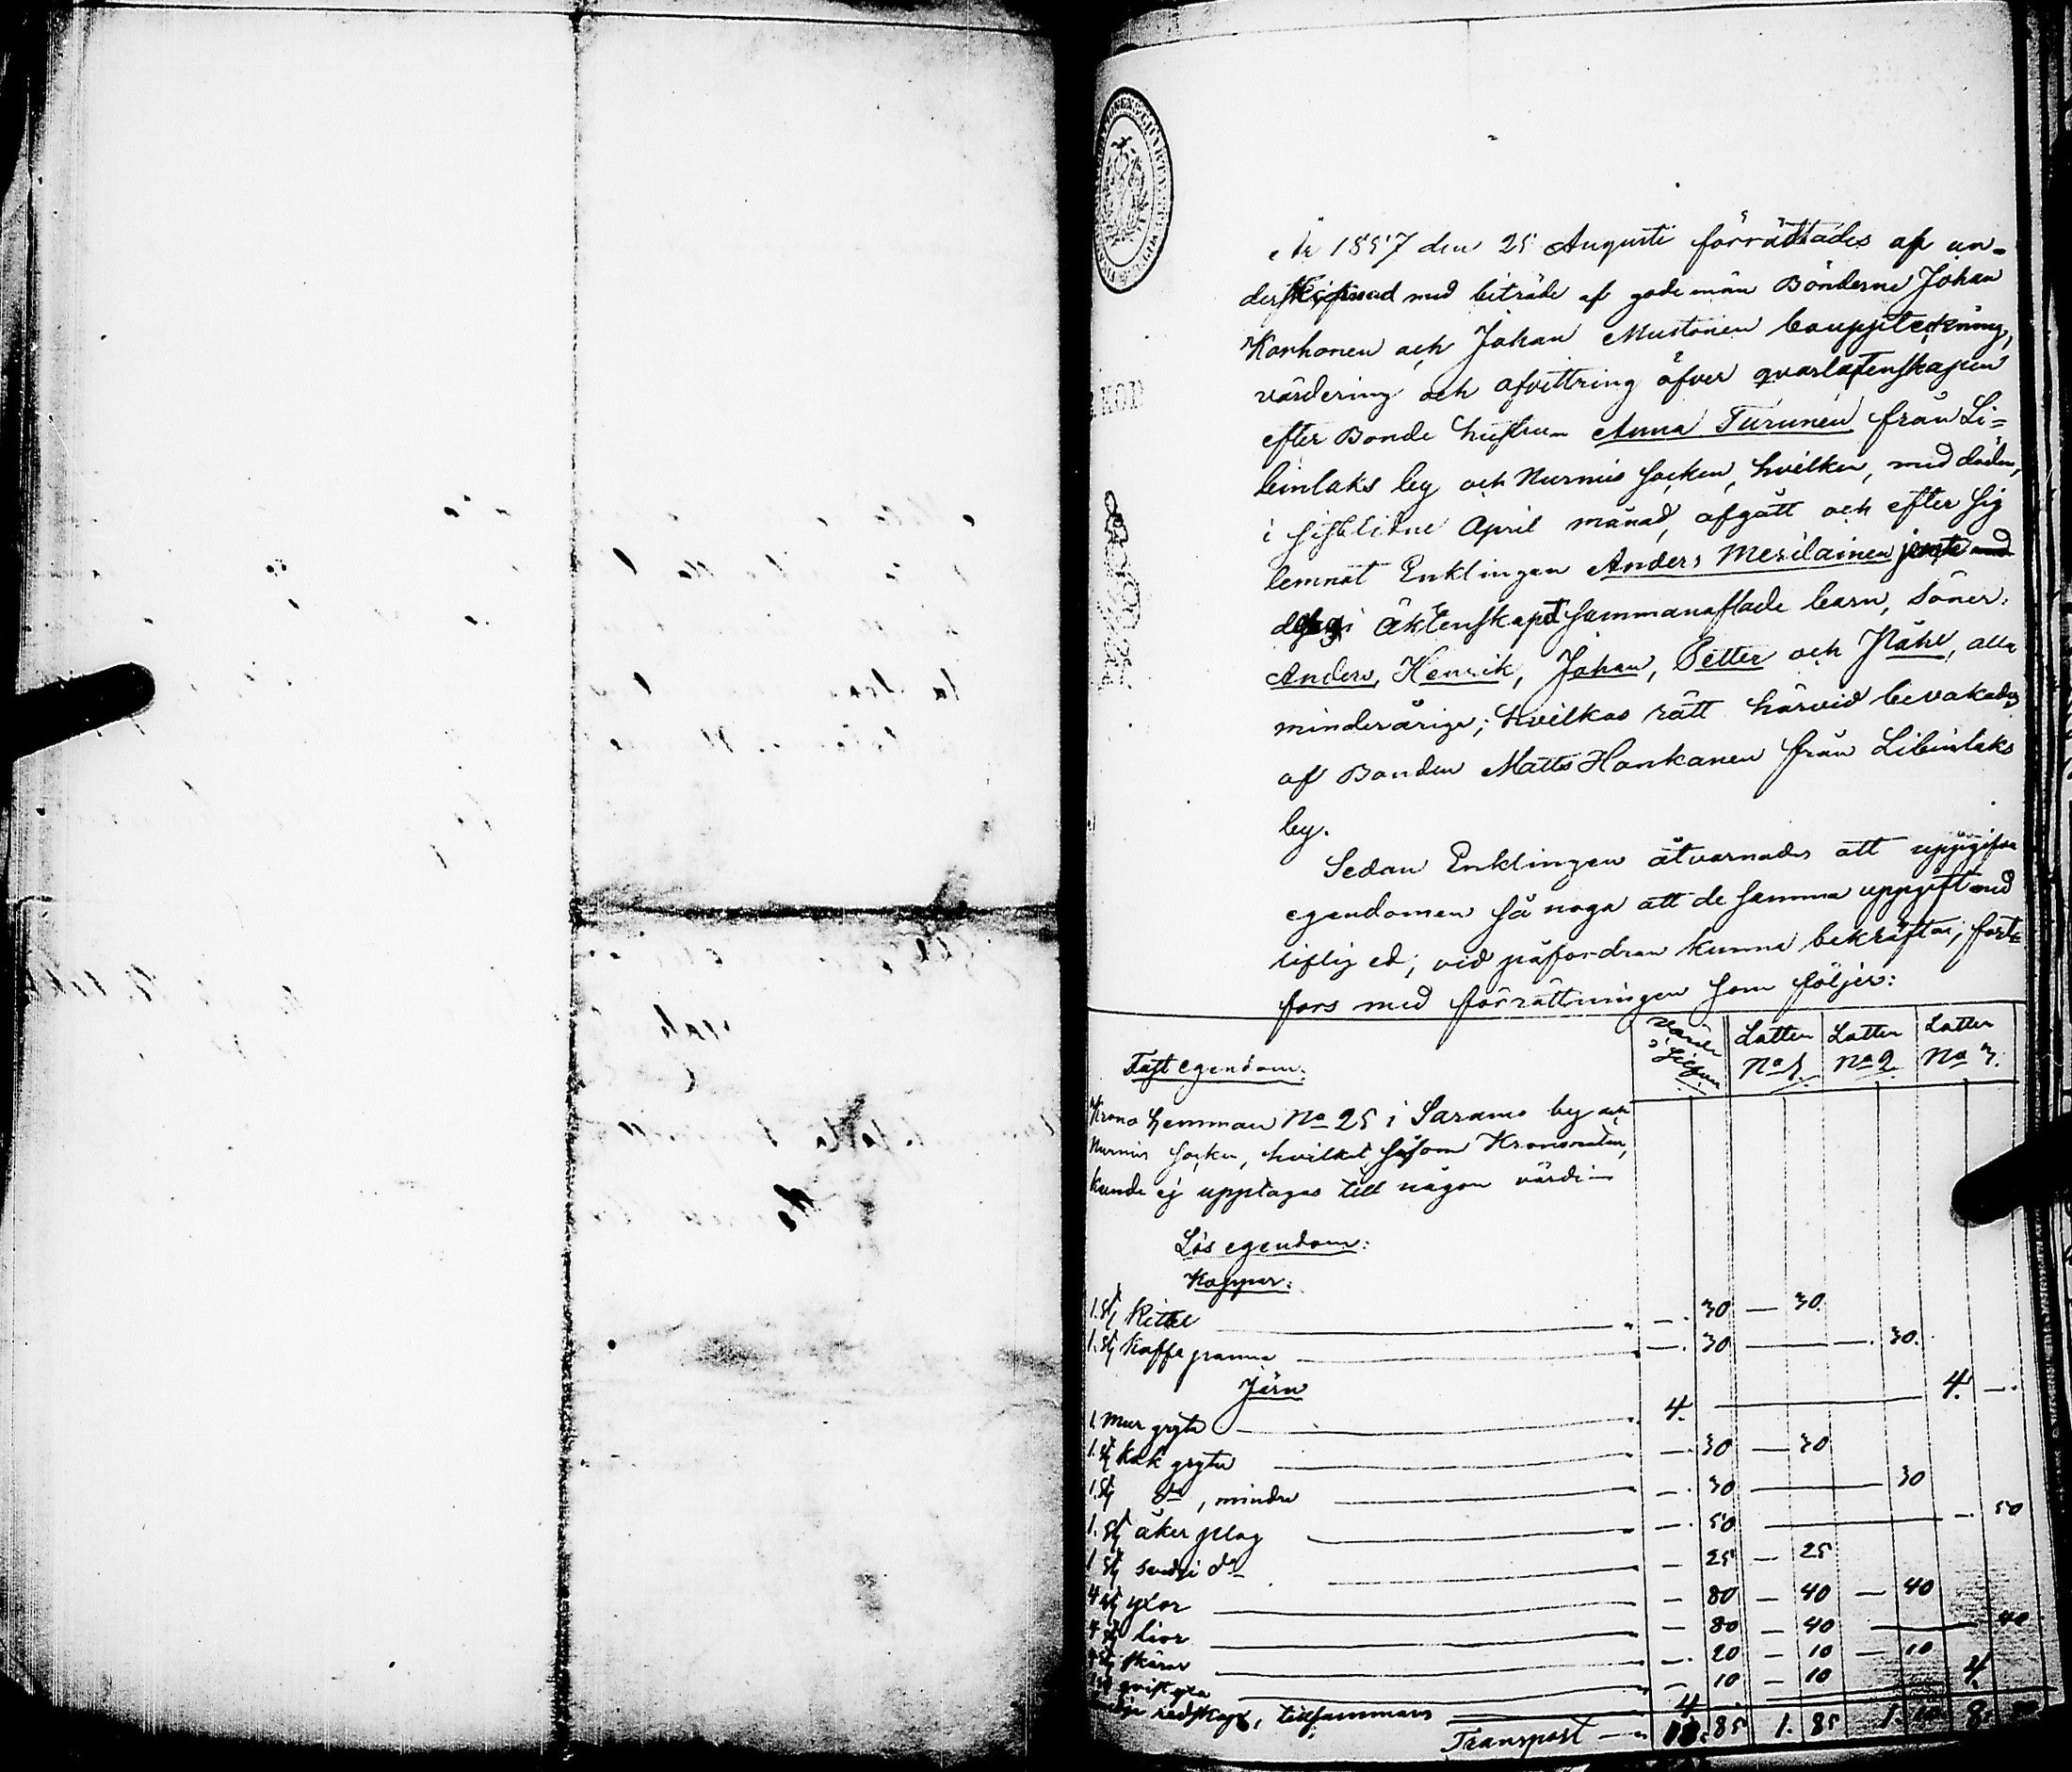 År 1857 den 25 Augusti förrättades af un-
dersk̶e̶fnad med biträde af gode män Bönderne Johan
Korhonen och Johan Mustonen bouppteckning,
värdering och afvittring öfver qvarlåtenskapen
efter Bonde hustrun Anna Turunen från Li=
beinlaks by och Nurmis socken, hvilken, med döden,
i sistlidne April månad, afgått och efter sig
lemnat Enklingen Anders Mesilainen jemte
i äktenskapet sammanaflade barn, söner:
Anders, Henrik, Johan, Petter och Påhl, alla
minderåriga; hvilkas rätt härvid bevakades
af Bonden Matts Honkanen från Libeinlaks
by.
Sedan Enklingen åtvarnades att uppgifva
egendomen så noga att de samma uppgift med
liflig ed, vid påfordran kunna bekräftas, fort=
fors med förrättningen som följer:
Värde i Silfver Lotten No 1. Lotten No 2 Lotten No 3.
Fast egendom:
Krono hemman No 25 i Saramo by och
Nurmis socken, hvilket såsom Krononatur,
kunde ej upptagas till någon värde —
Lös egendom:
Koppar:
1. st Kittel — 30 — 30.
1. st Kaffe panna — 30 — 30.
Järn
1. Mur gryta 4. 4. —
1. st kok gryta — 30 — 30
1. st do, mindre — 30 — 30
1. st åker plog — 50 — 50
1. st do — 25 — 25
4 st yxor — 80 — 40 — 40
4 st liar — 80 — 40 — 40
4 st skäror — 20 — 10 — 10
1 st qvist yxa — 10 — 10
redskap, tillsammans 4 4.
Transport — 11. 85 1. 85 1. 10 8.